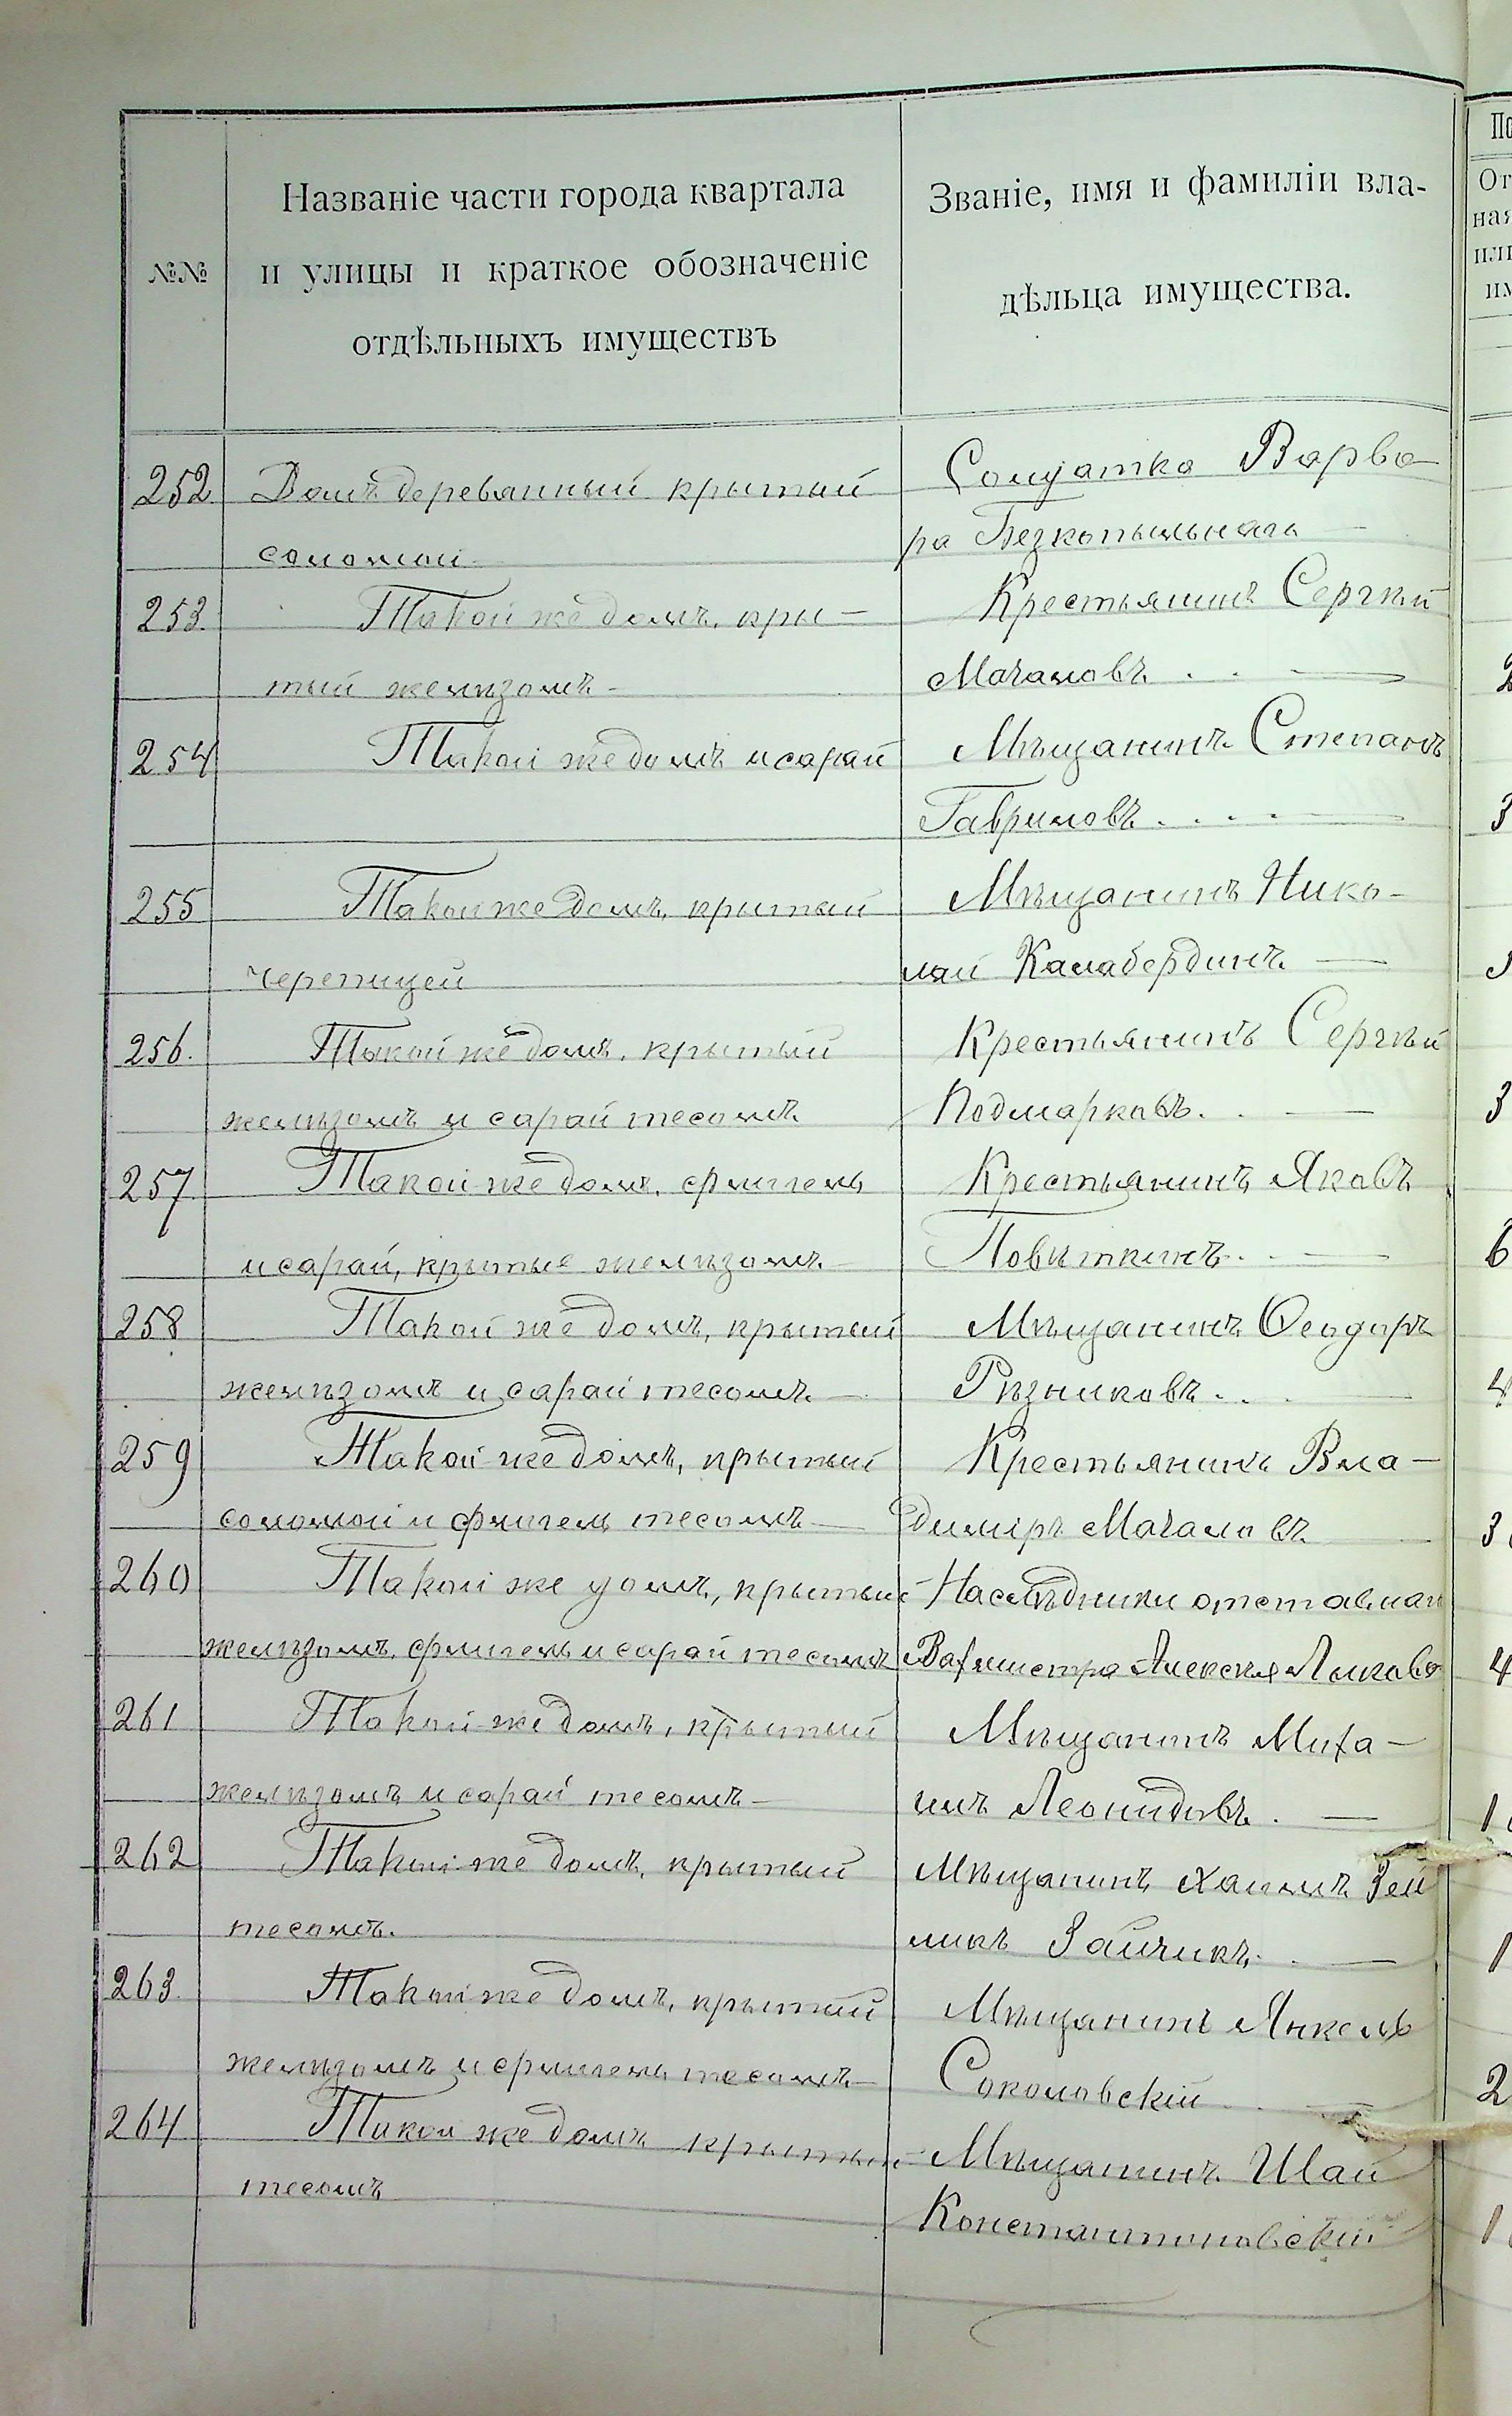 №№
Названіе части города квартала
и улицы и краткое обозначеніе
отдѣльныхъ имуществъ
Званіе, имя и фамиліи вла-
дѣльца имущества.
252 Домъ деревянный крытый
соломой
Солдатка Варва-
ра Безкопыльная
253 Такой же домъ, кры-
тый желѣзомъ
Крестьянинъ Сергѣй
Мочаловъ
254 Такой же домъ и сарай
Мѣщанинъ Степанъ
Гавриловъ
255 Такой же домъ, крытый
черепицей
Мѣщанинъ Нико-
лай Калабердинъ
256. Такой же домъ, крытый
желѣзомъ и сарай тесомъ
Крестьянинъ Сергѣй
Подмарковъ.
257 Такой же домъ, флигель
и сарай, крытые желѣзомъ
Крестьянинъ Яковъ
Повѣткинъ.
258 Такой же домъ, крытый
желѣзомъ и сарай тесомъ
Мѣщанинъ Ѳеодоръ
Рѣзниковъ.
259 Такой же домъ, крытый
соломой и флигель тесомъ
Крестьянинъ Вла-
диміръ Мочаловъ
260 Такой же домъ, крытый
желѣзомъ, флигель и сарай тесомъ
Наслѣдники отставнаго
Вахмистра Алексѣя
261 Такой же домъ, крытый
желѣзомъ и сарай тесомъ
Мѣщанинъ Миха-
илъ Леонидовъ.
262 Такой же домъ, крытый
тесомъ.
Мѣщанинъ Хаимъ Зей
Зайчикъ.
263 Такой же домъ, крытый
желѣзомъ и флигель тесомъ
Мѣщанинъ Янкель
Соколовскій
264 Такой же домъ крытый
тесомъ
Мѣщанинъ Шая
Константиновскій
По
От
ная
или
им
2
3
3
6
4
3
4
1
1
2
1